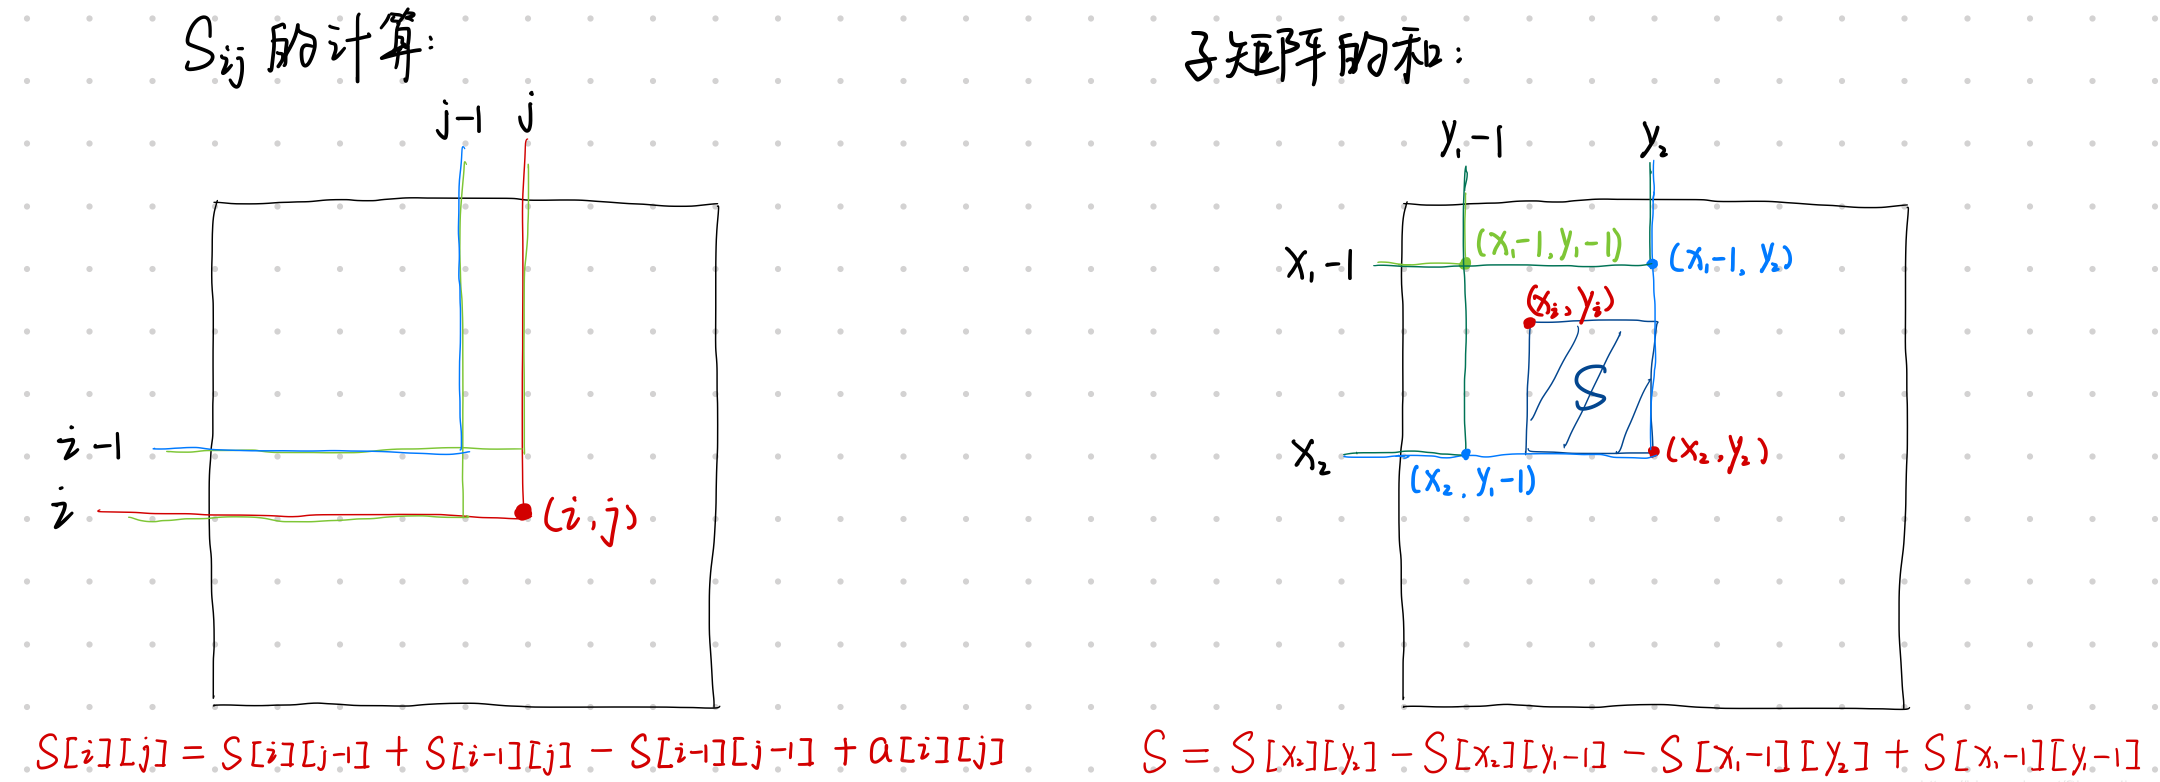 S_{ij} 的计算:
j-1 j
i-1
i
(i,j)
S[i][j] = S[i][j-1] + S[i-1][j] - S[i-1][j-1] + a[i][j]
子矩阵的和:
y₁-1 y₂
x₁-1
(x₁-1,y₁-1)
(x₁-1,y₂)
(xᵢ,yᵢ)
S
x₂
(x₂,y₁-1)
(x₂,y₂)
S = S[x₂][y₂] - S[x₂][y₁-1] - S[x₁-1][y₂] + S[x₁-1][y₁-1]